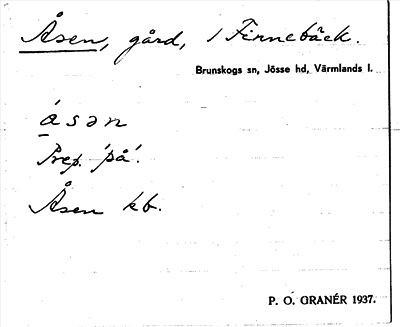 Åsen, gård, i Finnebäck.
Brunskogs sn, Jösse hd, Värmlands l.
ásən
Prep. 'på'.
Åsen kb.
P. O. GRANÉR 1937.